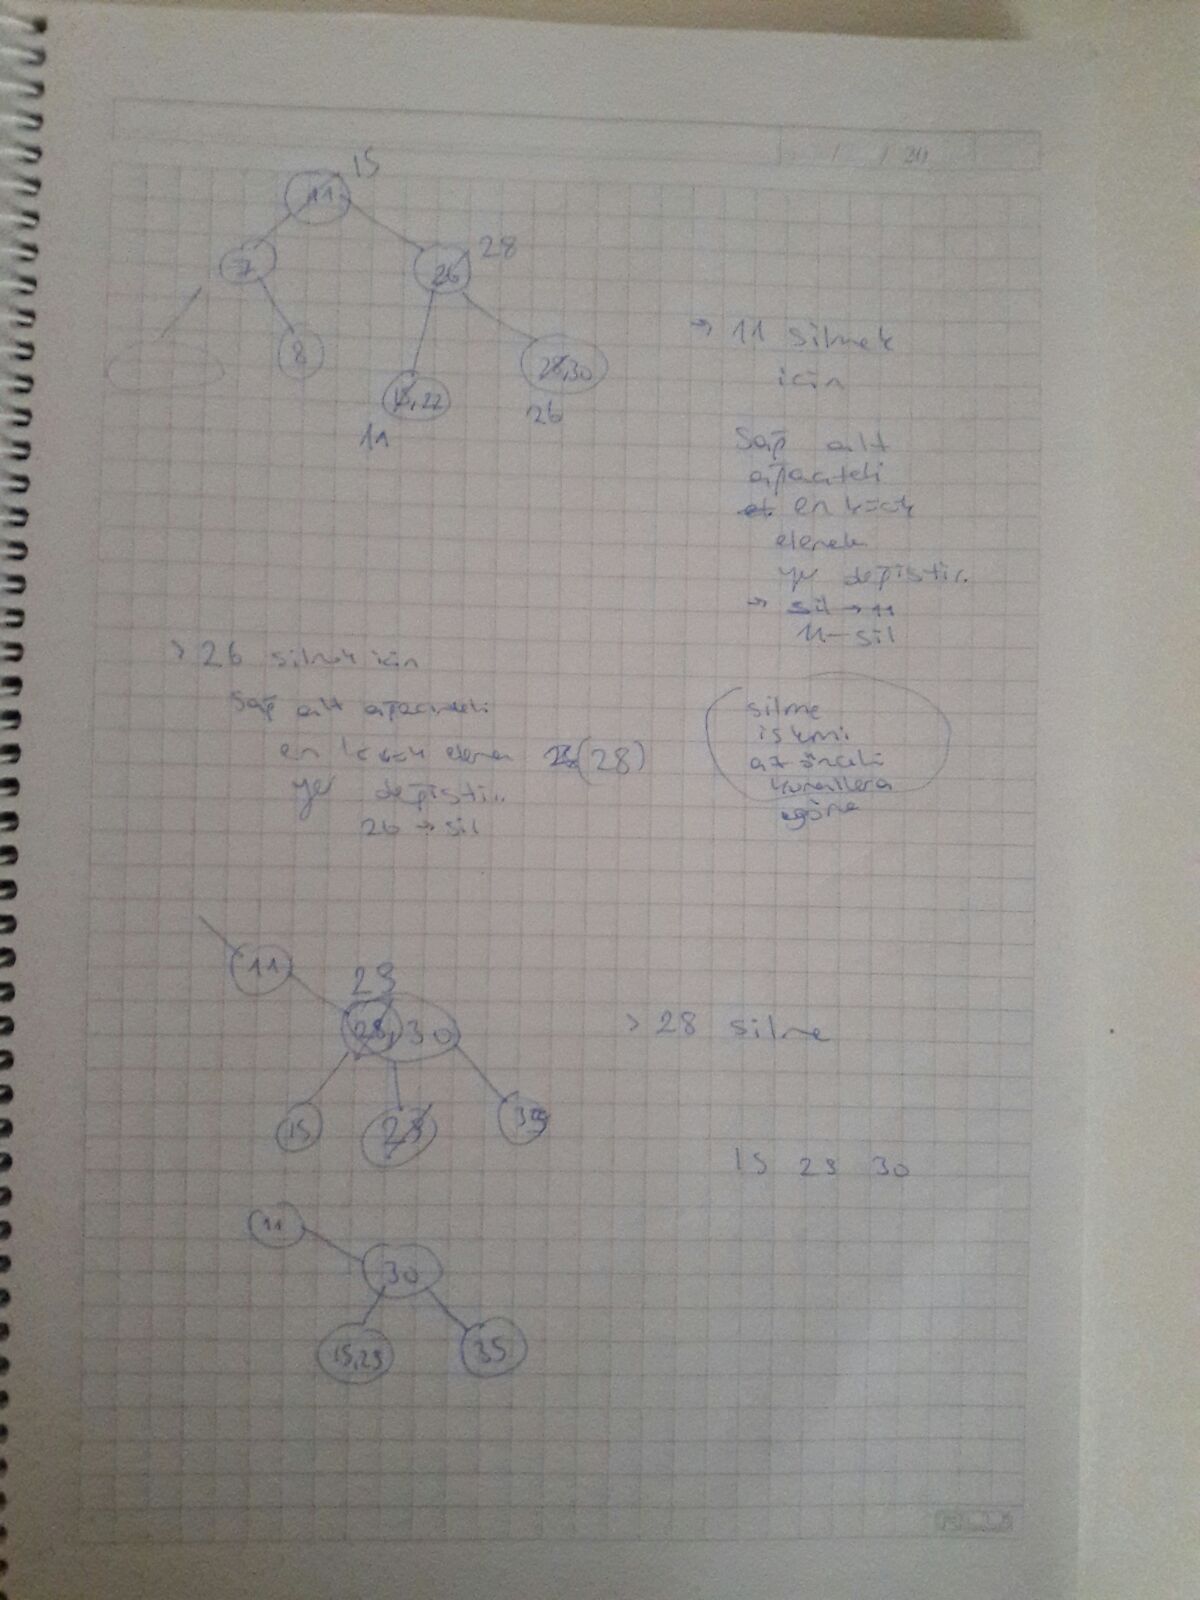 / / 20
15
11
7
26 28
8
15,22
11
28,30
26
→ 11 silmek
için
Sağ alt
ağaçtaki
en küçük
elemek
yer değiştir.
→ sil → 11
11 — sil
> 26 silmek için
Sağ alt ağaçtaki
en küçük eleman (28)
yer değiştir.
26 → sil
silme
işlemi
az önceki
kurallara
göre
11
29
28,30
15
29
35
> 28 silme
15 29 30
11
30
15,29
35